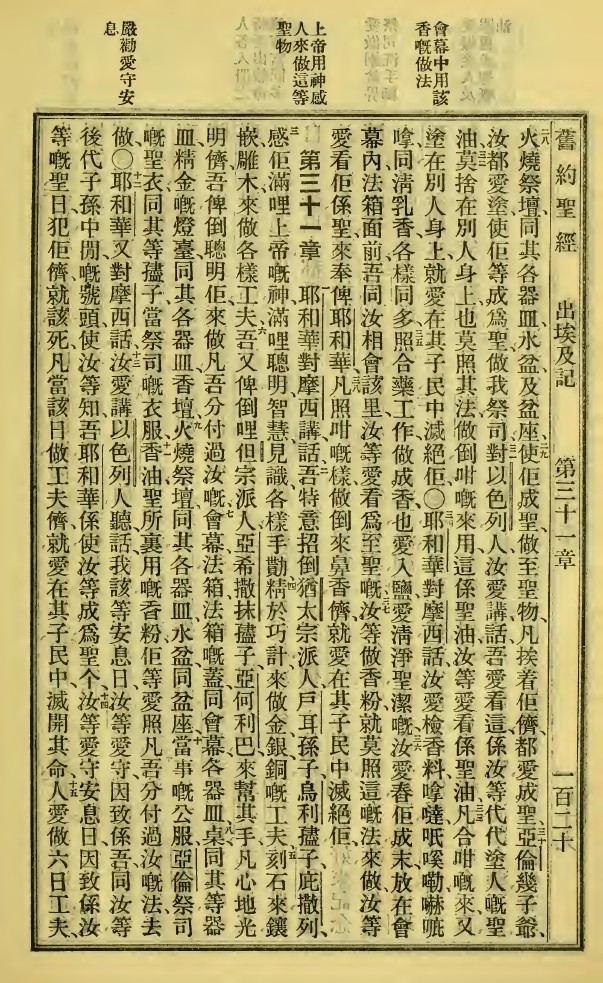 會幕中用該
香嘅做法
上帝用神感
人來做這等
聖物
嚴勸愛守安
息
舊約聖經 出埃及記 第三十一章 一百二十
火燒祭壇、同其各器皿、水盆及盆座、使佢成聖、做至聖物、凡挨着佢儕都愛成聖、亞倫幾子爺、
汝都愛塗使佢等成爲聖、做我祭司、對以色列人汝愛講話、吾愛看這係汝等代代塗人嘅聖
油、莫捨在別人身上、也莫照其法做倒咁嘅來用、這係聖油、汝等愛看係聖油、凡合咁嘅來、又
塗在別人身上、就愛在其子民中滅絕佢、〇耶和華對摩西話、汝愛檢香料、拿噠呧唉嘞嚇呲
拿、同淸乳香、各樣同多、照合藥工作做成香、也愛入鹽、愛淸淨聖潔嘅、汝愛舂佢成末、放在會
幕內、法箱面前、吾同汝相會該里、汝等愛看爲至聖嘅、汝等做香粉、就莫照這嘅法來做、汝等
愛看佢係聖來奉俾耶和華、凡照咁嘅樣做倒來鼻香儕、就愛在其子民中滅絕佢、
第三十一章 一耶和華對摩西講話、二吾特意招倒猶太宗派人、戶耳孫子、烏利孻子、庇撒列、
三感佢滿哩上帝嘅神、滿哩聰明智慧見識、各樣手勩、四精於巧計、來做金銀銅嘅工夫、五刻石來鑲
嵌、雕木來做各樣工夫、六吾又俾倒哩但宗派人亞希撒抹孻子亞何利巴、來幫其手、凡心地光
明儕、吾俾倒聰明佢、來做凡吾分付過汝嘅、七會幕、法箱、法箱嘅蓋、同會幕各器皿、八桌同其等器
皿、精金嘅燈臺同其各器皿、香壇、九火燒祭壇同其各器皿、水盆同盆座、十當事嘅公服、亞倫祭司
嘅聖衣、同其等孻子當祭司嘅衣服、十一香油、聖所裏用嘅香粉、佢等愛照凡吾分付過汝嘅法去
做、〇十二耶和華又對摩西話、十三汝愛講以色列人聽話、我該等安息日、汝等愛守、因致係吾同汝等
後代子孫中間嘅號頭、使汝等知吾耶和華係使汝等成爲聖个、十四汝等愛守安息日、因致係汝
等嘅聖日、犯佢儕就該死、凡當該日做工夫儕、就愛在其子民中滅開其命、十五人愛做六日工夫、